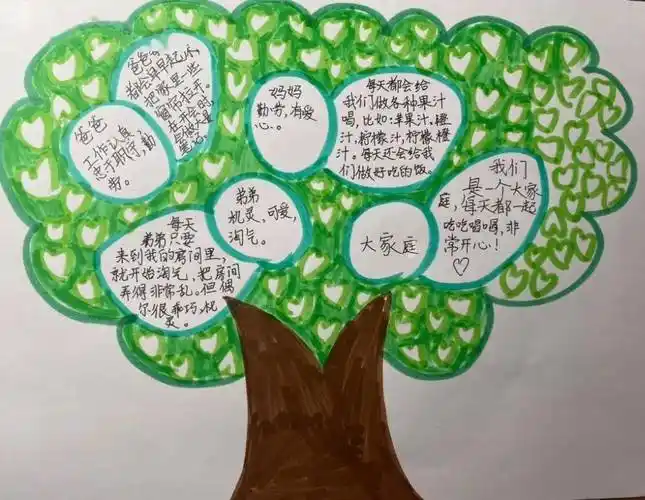 爸爸
都会早早起床,
把家里一些
窗帘拉开。
爸爸
工作认真
忠于职守,勤
劳。
妈妈
勤劳,有爱
心。
每天都会给
我们做各种果汁
喝,比如:苹果汁,橙
汁,柠檬汁,柠檬橙
汁。每天还会给我
们做好吃的饭。
弟弟
机灵、可爱,
淘气。
每天
弟弟只要
来到我的房间里,
就开始淘气,把房间
弄得非常乱。但偶
尔很乖巧,机
灵。
大家庭
我们
是一个大家
庭,每天都一起
吃吃喝喝,非
常开心!